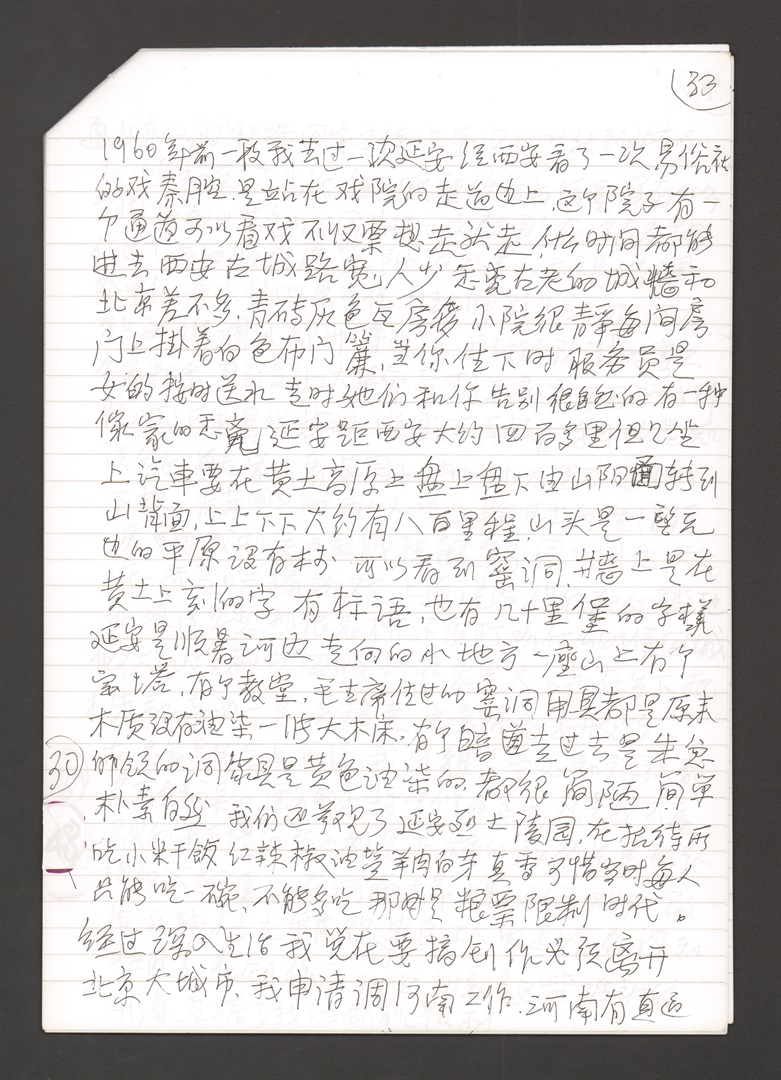 33
1960年前一段我去过一次延安经西安看了一次易俗社
的戏秦腔.是站在戏院的走道边上,这个院子有一
个通道可以看戏不收票想走就走,什么时间都能
进去西安古城路宽,人少 古老的城墙和
北京差不多,青砖灰色瓦房 小院很静每间房
门上掛着白色布门簾,当你住下时 服务员是
女的按时送水 走时她们和你告别很 的 有一种
像家的 延安距西安大约四百多里但又坐
上汽車要在黄土高原上盘上盘下由山阳 转到
山背面,上上下下大约有八百里程,山头是一望无
边的平原没有树 可以看到窑洞,墙上是在
黄土上刻的字 有标语,也有几十里堡的字样
延安是顺着河边走向的小地方一座山上有个
宝塔,有个教堂,毛主席住过的窑洞用具都是原来
木质没有油染一张大木床,有个暗道走过去是朱总
30
师领的洞傢具是黄色油染的,都很简陋 简单
朴素自然 我们还参观了延安烈士陵园,在招待所
吃小米干飯红辣椒油 羊肉白芽真香可惜当时每人
只能吃一碗,不能多吃 那时是粮票限制时代。
经过深入生活我觉在要搞创作必须离开
北京大城市,我申请调河南工作.河南有直通